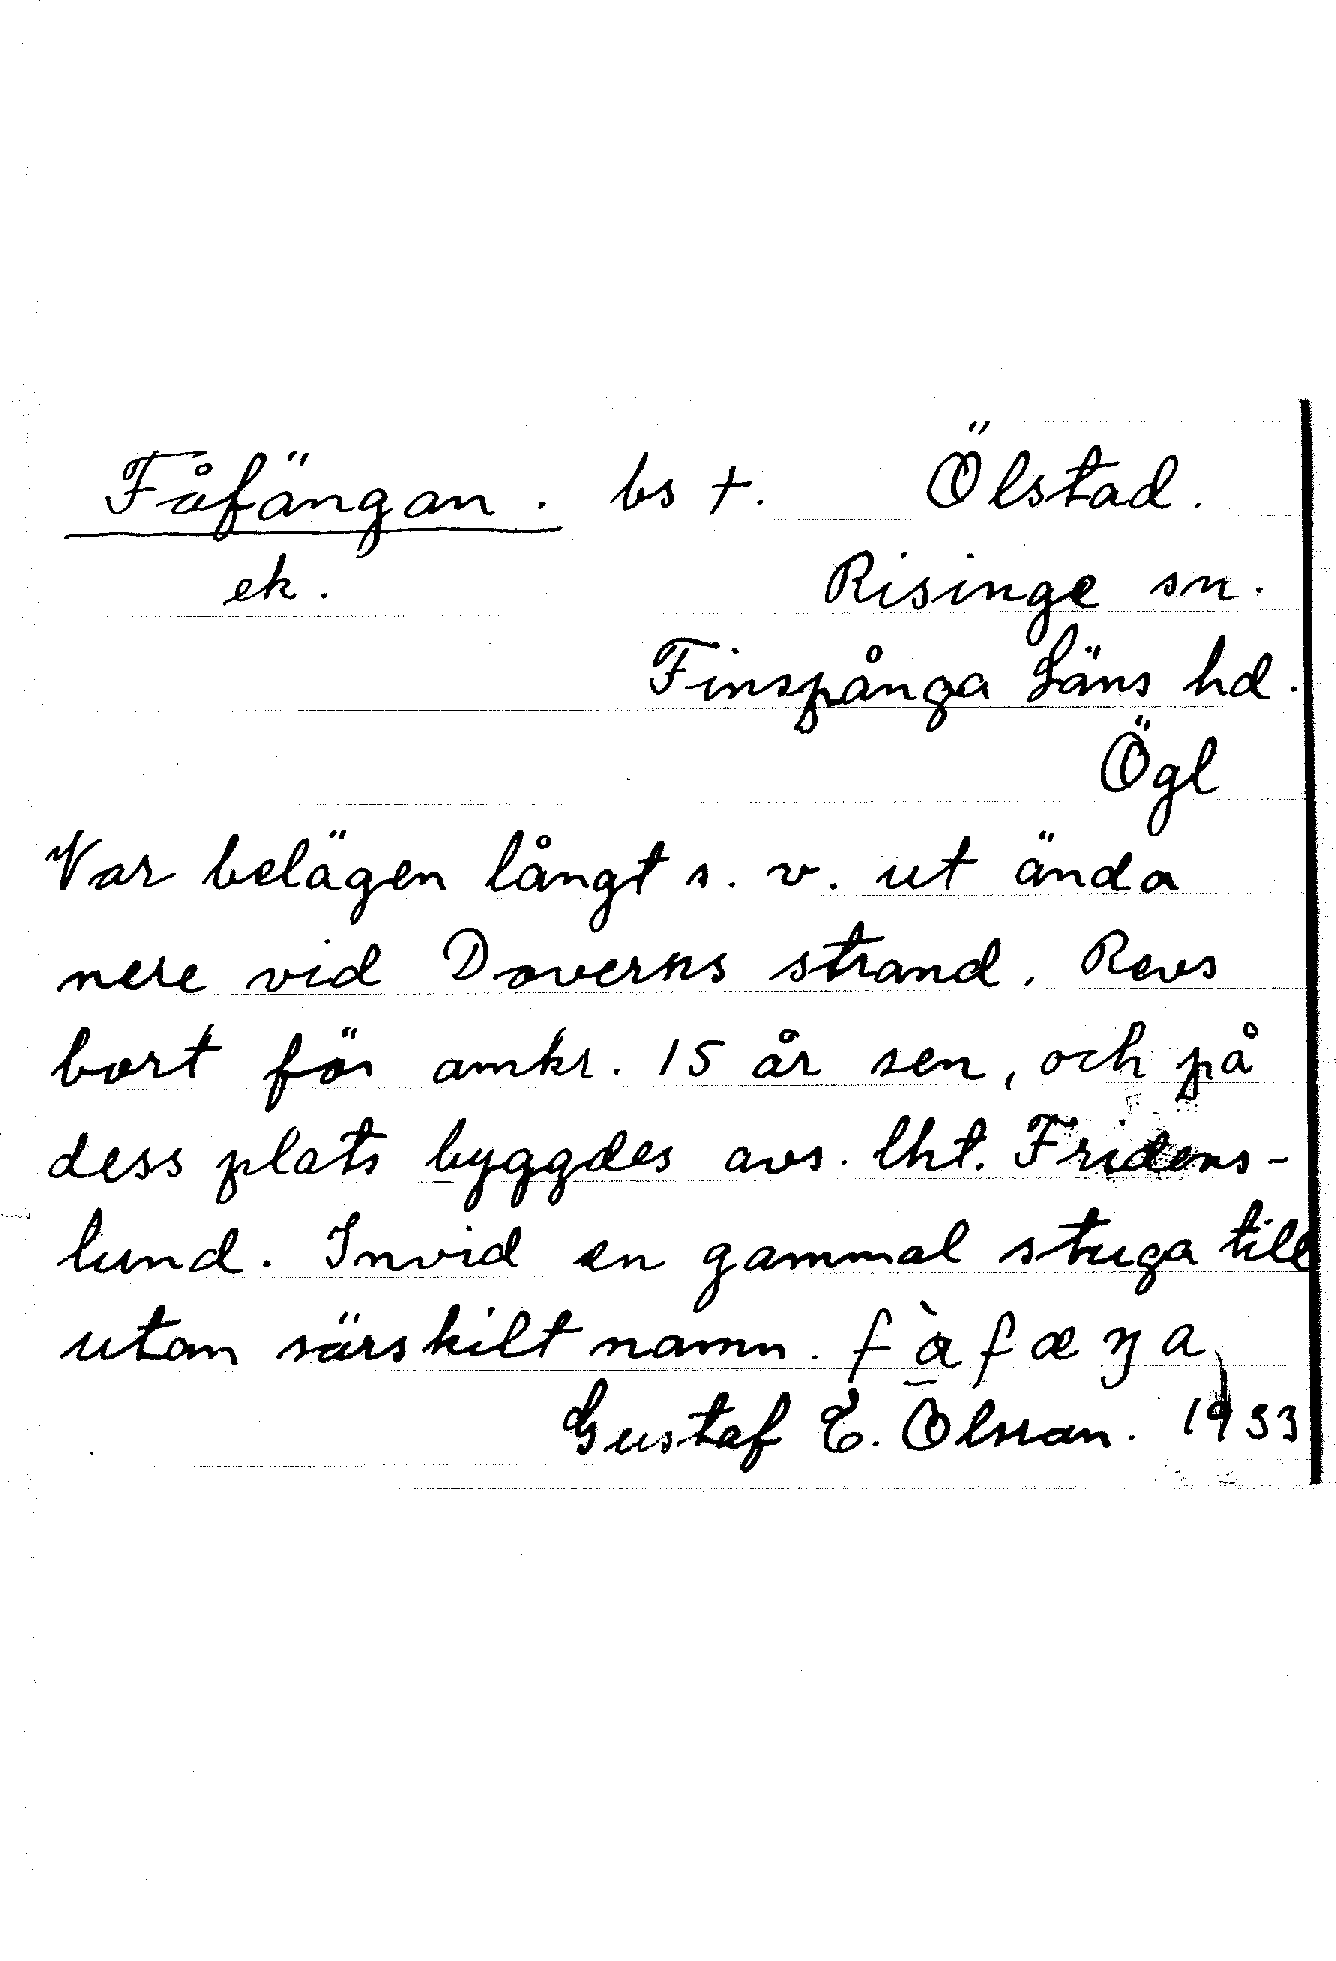 Fåfängan. bs +. Ölstad.
ek. Risinge sn.
Finspånga Läns hd.
Ögl
Var belägen långt s. v. ut ända
nere vid Doverns strand. Revs
bort för omkr. 15 år sen, och på
dess plats byggdes avs. lht. Fridens-
lund. Invid en gammal stuga till
utan särskilt namn. fàfæŋa
Gustaf E. Olsson. 1933